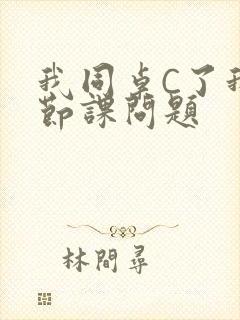 我同桌C了我
節課問題
林間尋